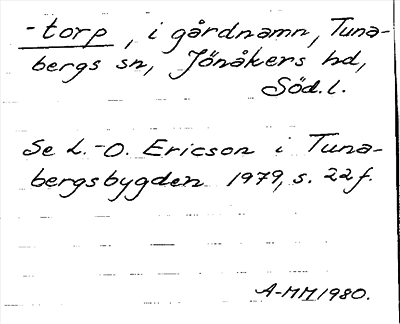 -torp, i gårdnamn, Tuna-
bergs sn, Jönåkers hd,
Söd.l.
Se L.-O. Ericson i Tuna-
bergsbygden 1979, s. 22f.
A-MM1980.